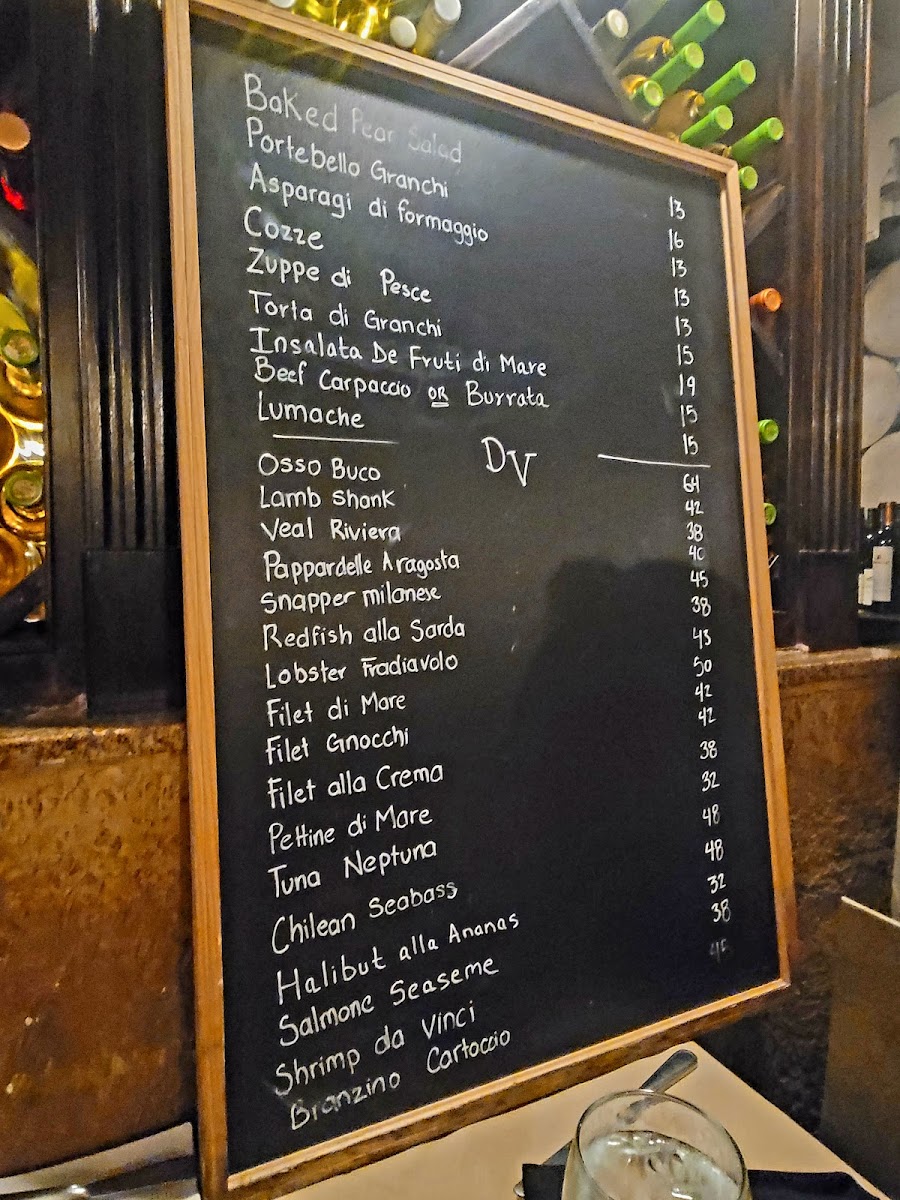 Baked Pear Salad 13
Portebello Granchi 16
Asparagi di formaggio 13
Cozze 13
Zuppe di Pesce 13
Torta di Granchi 15
Insalata De Fruti di Mare 19
Beef Carpaccio OR Burrata 15
Lumache 15
DV
Osso Buco 64
Lamb Shank 42
Veal Riviera 38
Pappardelle Aragosta 40
Snapper milanese 45
Redfish alla Sarda 38
Lobster Fradiavolo 43
Filet di Mare 50
Filet Gnocchi 42
Filet alla Crema 42
Pettine di Mare 38
Tuna Neptuna 32
Chilean Seabass 48
Halibut alla Ananas 48
Salmone Seaseme 32
Shrimp da Vinci 38
Branzino Cartoccio 45